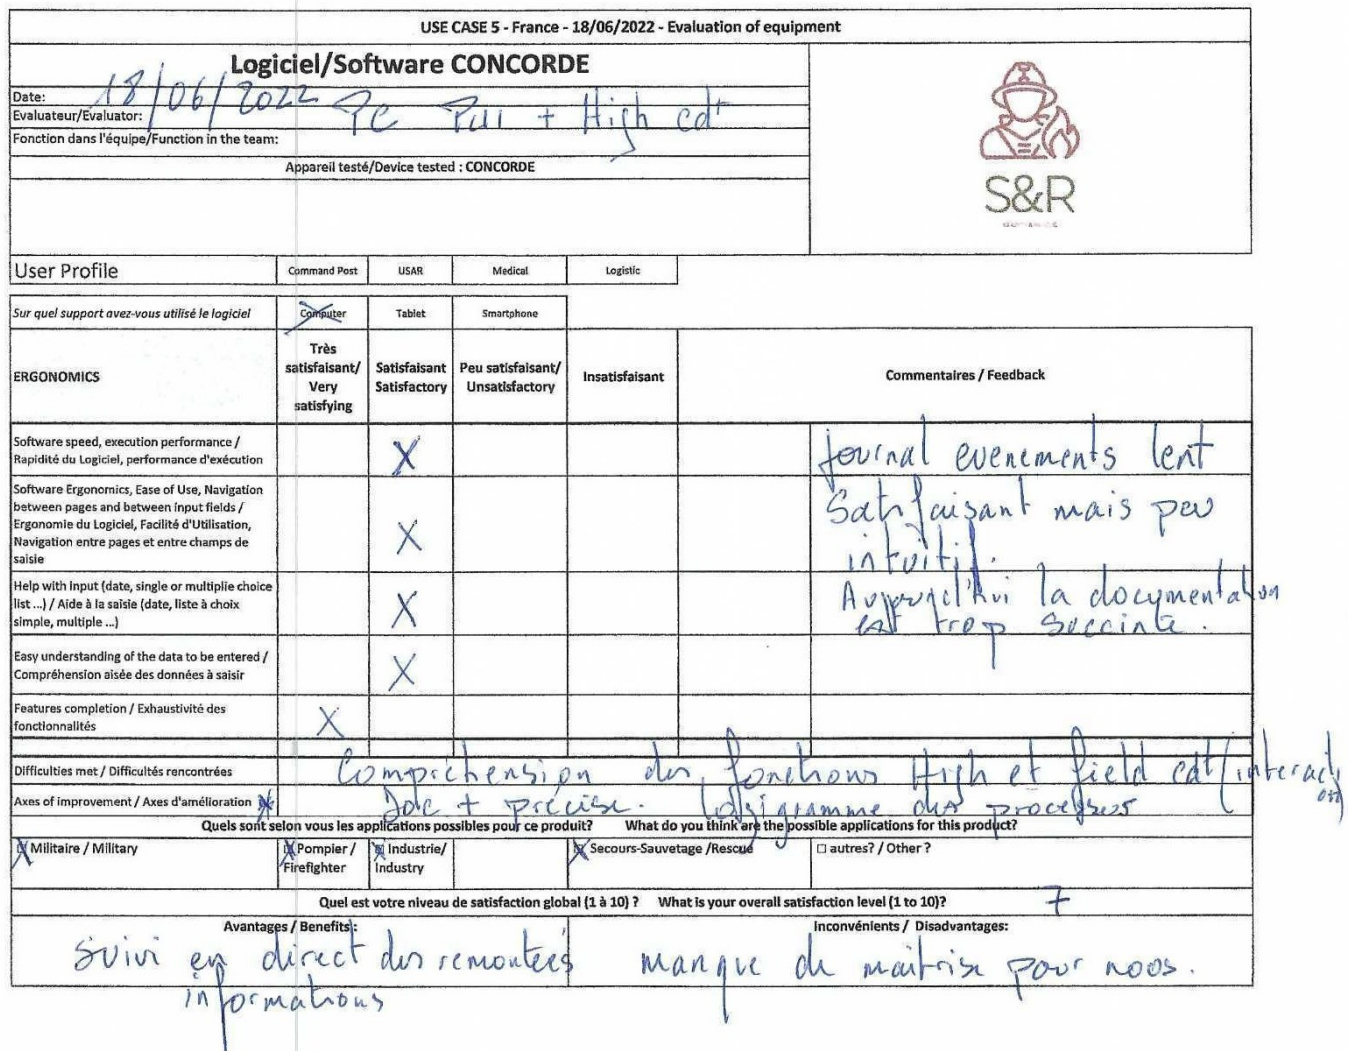 USE CASE 5 - France - 18/06/2022 - Evaluation of equipment
Logiciel/Software CONCORDE
Date: 18/06/2022
Evaluateur/Evaluator: PC PUI + High cdt
Fonction dans l'équipe/Function in the team:
Appareil testé/Device tested : CONCORDE
S&R
User Profile Command Post USAR Medical Logistic
Sur quel support avez-vous utilisé le logiciel Computer Tablet Smartphone
ERGONOMICS
Très
satisfaisant/
Very
satisfying
Satisfaisant
Satisfactory
Peu satisfaisant/
Unsatisfactory
Insatisfaisant
Commentaires / Feedback
Software speed, execution performance /
Rapidité du Logiciel, performance d'exécution
X
Journal evenements lent
Software Ergonomics, Ease of Use, Navigation
between pages and between input fields /
Ergonomie du Logiciel, Facilité d'Utilisation,
Navigation entre pages et entre champs de
saisie
X
Satisfaisant mais peu
intuitif.
Help with input (date, single or multiplie choice
list ...) / Aide à la saisie (date, liste à choix
simple, multiple ...)
X
Aujourd'hui la documentation
est trop succinte.
Easy understanding of the data to be entered /
Compréhension aisée des données à saisir
X
Features completion / Exhaustivité des
fonctionnalités
X
Difficulties met / Difficultés rencontrées Compréhension des fonctions High et field cdt (interaction
Axes of improvement / Axes d'amélioration Doc + précise. Logigramme des processus
Quels sont selon vous les applications possibles pour ce produit? What do you think are the possible applications for this product?
X Militaire / Military
X Pompier /
Firefighter
X Industrie/
Industry
X Secours-Sauvetage /Rescue
□ autres? / Other ?
Quel est votre niveau de satisfaction global (1 à 10) ? What is your overall satisfaction level (1 to 10)? 7
Avantages / Benefits:
suivi en direct des remontées
informations
Inconvénients / Disadvantages:
manque de maitrise pour noos.